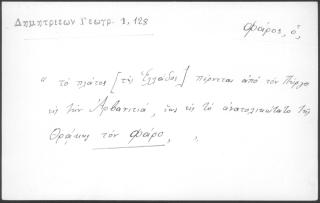 Δημητριεων Γεωγρ. 1, 128
Φάρος, ὁ,
" τὸ πλάτος [τῆς Ἑλλάδος] πέρνεται ἀπὸ τὸν Πύργο
εἰς τὴν Ἀρβανιτιά, ἕως εἰς τὸ ἀνατολικώτατο τῆς
Θράκης τὸν Φάρο, .